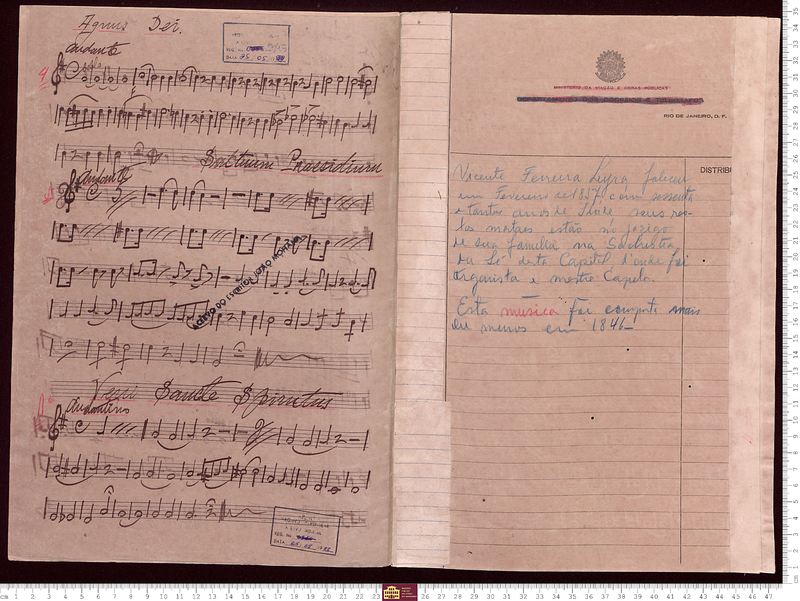 Agnus Dei.
Andante
Solo
Andante
ACERVO DO ESCRITOR JOÃO MOHANA
Veni Sancte Spiritus
Andantino
MINISTERIO DA VIAÇÃO E OBRAS PUBLICAS
RIO DE JANEIRO, D. F.
DISTRIBU
Vicente Ferreira Lyra faleceu
em Fevereiro de 1857, com sessenta
e tantos anos de idade seus res-
tos mortaes estão no jazigo
de sua familia na Sachristia
da Sé desta Capital d'onde foi
organista e mestre Capela.
Esta musica foi composta mais
ou menos em 1846